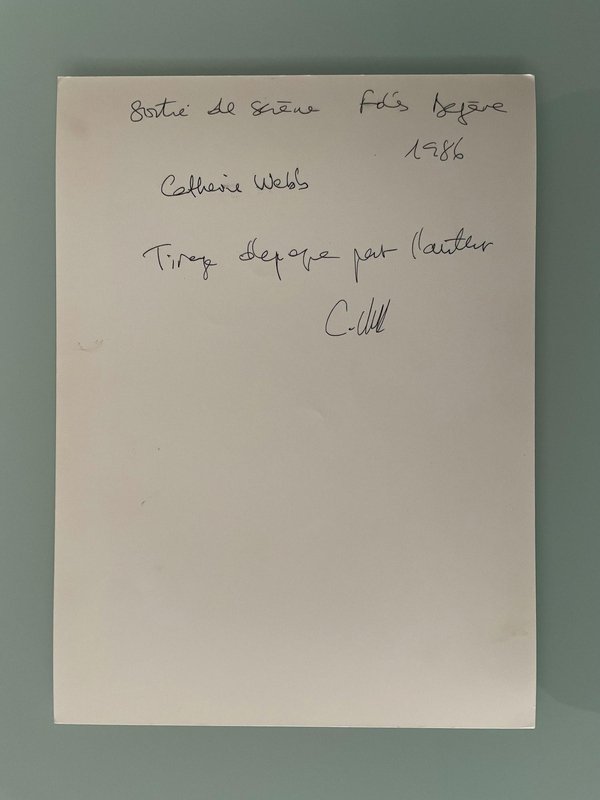 Sortie de Scène Folies Bergère
1986
Catherine Webb
Tirage d'epoque par l'auteur